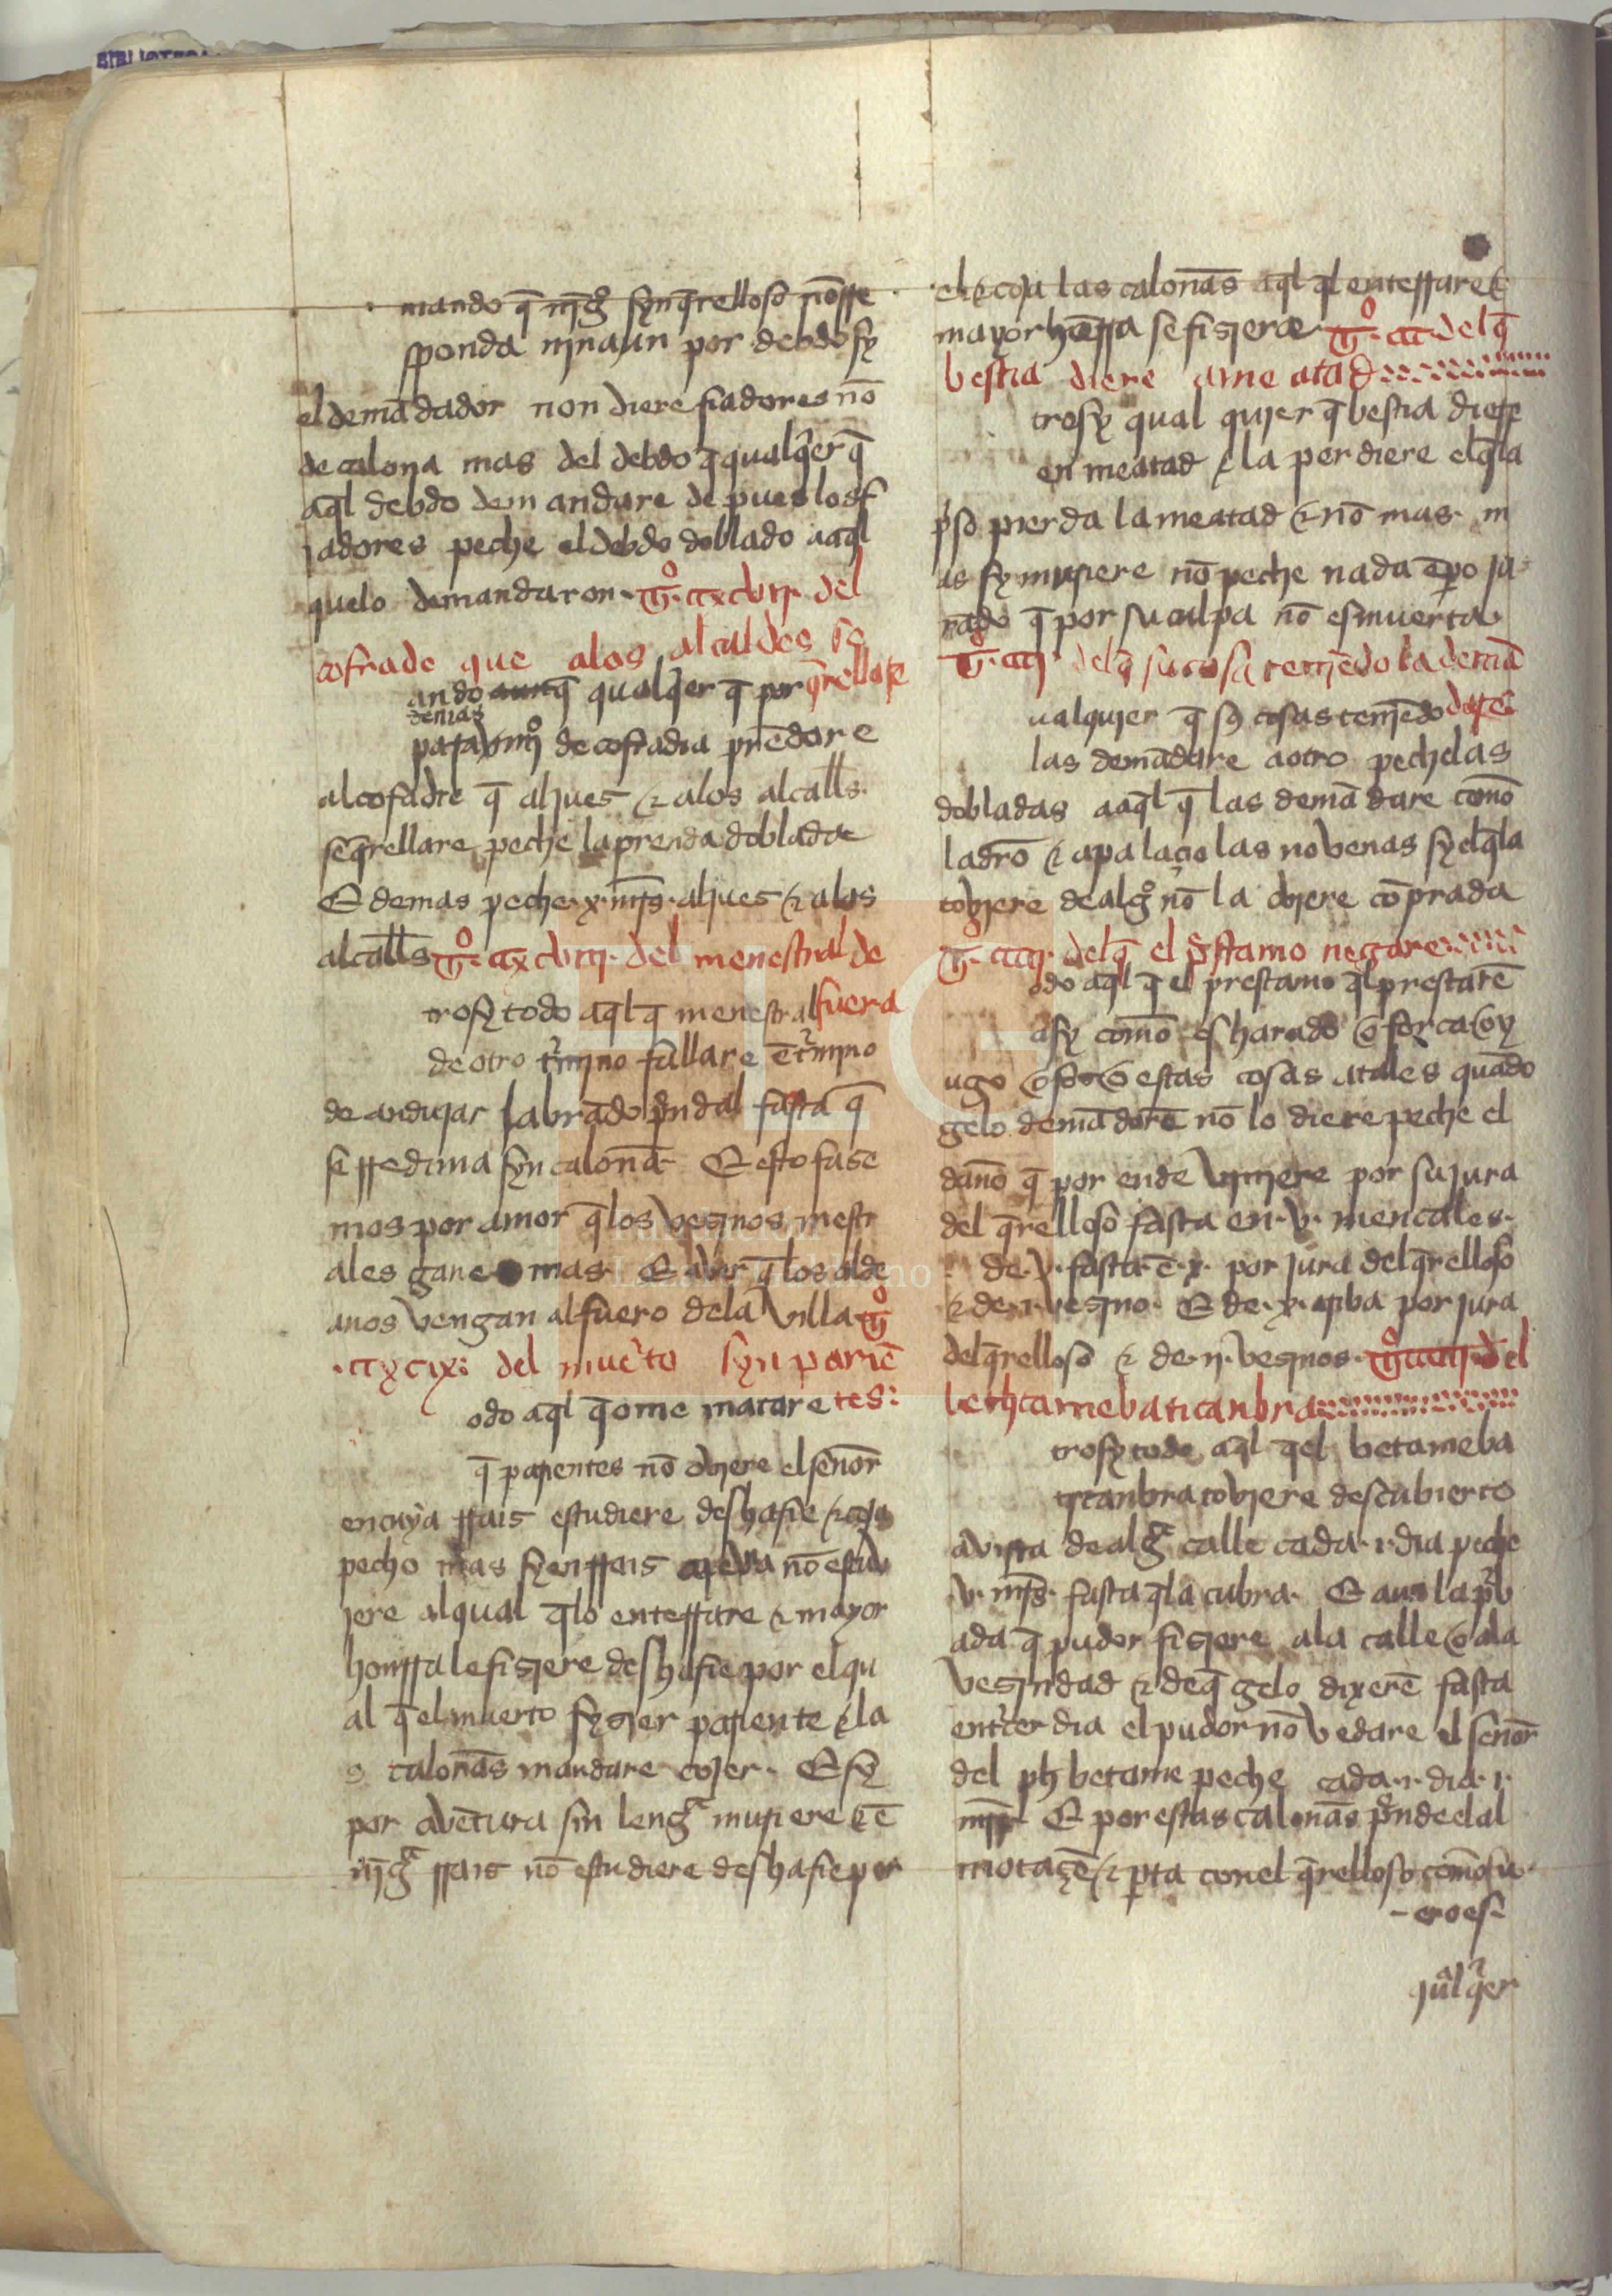 mando q̄ nīgº syn q̄relloso nō rre
sponda njn aun por debdo sy
el demādador non diere fiadores nō
de calona mas del debdo q̄ qualq̄er q̄
aq̄l debdo demandare depues los f
iadores peche el debdo doblado a aq̄l
que lo demandaron. Tº. ccxcvij. del
cofrade que alos alcaldes se
ando aunq̄ qualq̄er q̄ por q̄rellare
demas
de cofradia prēdare
al cofadre q̄ al jues & alos alcalls.
se q̄rellare peche la prenda doblada
E demas peche .x. mr̄s. al jues & alos
alcalls Tº. ccxcviij. del menestral de
trosy todo aq̄l q̄ menestral fuera
de otro t̄mjno fallare ē t̄mjno
de andujar labrādo p̄ndal fasta q̄
se rredima syn calona. E esto fase
mos por amor q̄ los vesjnos mestr
ales gane mas. E aver q̄ los alde
anos vengan al fuero dela villa Tº
.ccxcix. del mueto syn pariē
odo aq̄l q̄ ome matare tes:
q̄ parientes nō oviere el senor
en cuya rrais estudiere deshafie & coja
pecho mas sy en rrais agena nō estuv
iere al qual q̄ lo enterrare & mayor
honrra le fisiere deshafie por el qu
al q̄ el muerto fisier pariente & la
s calonas mandare cojer. E sy
por avētura sin lengª muriere & ē
nīgª rrais nō estudiere deshafie por
el & coja las calonas aq̄l q̄l enterrare &
mayor hōrra se fisiere Tº. ccc. del q̄
bestia diere ameatad
trosy qual quier q̄ bestia diere
en meatad & la perdiere el q̄ la
p̄so pierda la meatad & nō mas. m
as sy muriere nō peche nada ēpo ju
rādo q̄ por su culpa nō es muerta
Tº. cccj. del q̄ su cosa temjēdo la demā
ualquier q̄ sus cosas temjēdo dare
las demādare a otro pechelas
dobladas a aq̄l q̄ las demādare como
ladrō & a palaçio las novenas sy el q̄ la
toviere de algº nō la oviere cōprada
Tº. cccij. del q̄ el p̄stamo negare
odo aq̄l q̄ el prestamo q̄l prestarē
asy como es harado o forca o y
ugo o estas cosas atales quādo
gelo demādarē nō lo diere peche el
dano q̄ por ende vjnjere por su jura
del q̄relloso fasta en .v. mencales.
de .v. fasta ē .x. por jura del q̄relloso
& de .i. vesjno. E de .x. arriba por jura
del q̄relloso & de .ij. vesjnos. Tº ccciij. del
trosy todo aq̄l q̄ el betameba
ticanbra toviere descubierto
a vista de algª calle cada .i. dia peche
.v. mr̄s. fasta q̄ la cubra. E aun la p̄v
ada q̄ pudor fisiere ala calle o ala
vesjndad & de q̄ gelo dixerē fasta
en terçer dia el pudor nō vedare el senor
del betame peche cada .i. dia .i.
mr̄. E por estas calonas p̄nde el al
motaçē & parta con el q̄relloso como fu
- ero es -
qualq̄er